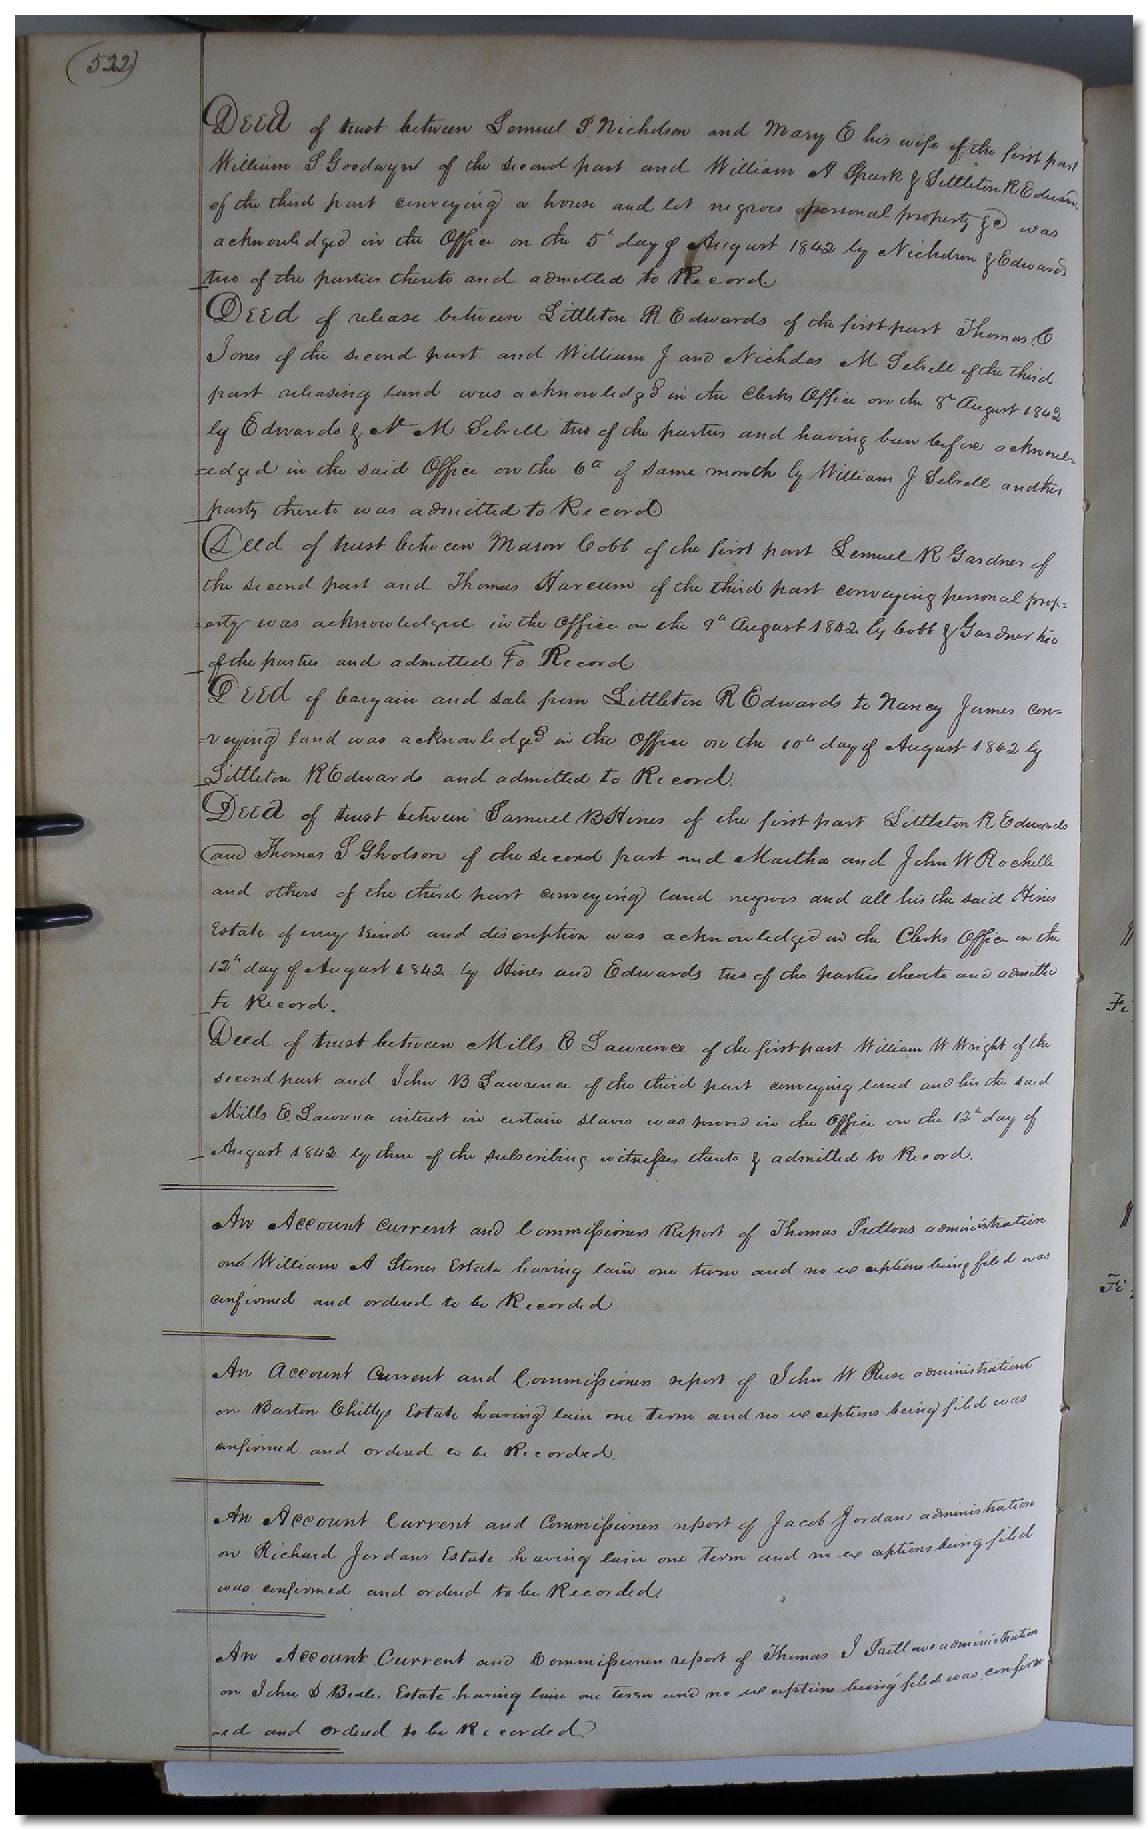 (522)
Deed of trust between Lemuel P. Nicholson and Mary E his wife of the first part
William S Goodwyn of the second part and William A Spark & Littleton R Edwards
of the third part conveying a house and lot negroes personal property &c was
acknowledged in the Office on the 5th day of August 1842 by Nicholson & Edwards
two of the parties thereto and admitted to Record
Deed of release between Littleton R Edwards of the first part Thomas C
Jones of the second part and William J and Nicholas M Sebrell of the third
part releasing land was acknowledged in the Clerks Office on the 8th August 1842
by Edwards & N M Sebrell two of the parties and having been before acknowl-
=edged in the said Office on the 6th of same month by William J Sebrell another
party thereto was admitted to Record
Deed of trust between Mason Cobb of the first part Lemuel R Gardner of
the second part and Thomas Harcum of the third part conveying personal prop=
=erty was acknowledged in the Office on the 9th August 1842 by Cobb & Gardner two
of the parties and admitted To Record
Deed of bargain and sale from Littleton R Edwards to Nancy James con=
=veying land was acknowledged in the Office on the 10th day of August 1842 by
Littleton R Edwards and admitted to Record.
Deed of trust between Samuel B Hines of the first part Littleton R Edwards
and Thomas S Gholson of the second part and Martha and John W Rochelle
and others of the third part conveying land negroes and all his the said Hines
Estate of every kind and discription was acknowledged in the Clerks Office on the
12th day of August 1842 by Hines and Edwards two of the parties thereto and admitted
to Record.
Deed of trust between Mills E Lawrence of the first part William W Wright of the
second part and John B Lawrence of the third part conveying land and his the said
Mills E. Lawrence interest in certain slaves was proved in the Office on the 12th day of
August 1842 by three of the subscribing witnesses thereto & admitted to Record.
An Account Current and Commissioners Report of Thomas Pretlows administration
on William A Stones Estate having lain one term and no exceptions being filed was
confirmed and ordered to be Recorded
An Account Current and Commissioners report of John W Reese administration
on Barton Chittys Estate having lain one term and no exceptions being filed was
confirmed and ordered to be Recorded.
An Account Current and Commissioners report of Jacob Jordans administration
on Richard Jordans Estate having lain one term and no exceptions being filed
was confirmed and ordered to be Recorded.
An Account Current and Commissioners report of Thomas J Pretlows administration
on John D Beale Estate having lain one term and no exceptions being filed was confirm
=ed and ordered to be Recorded